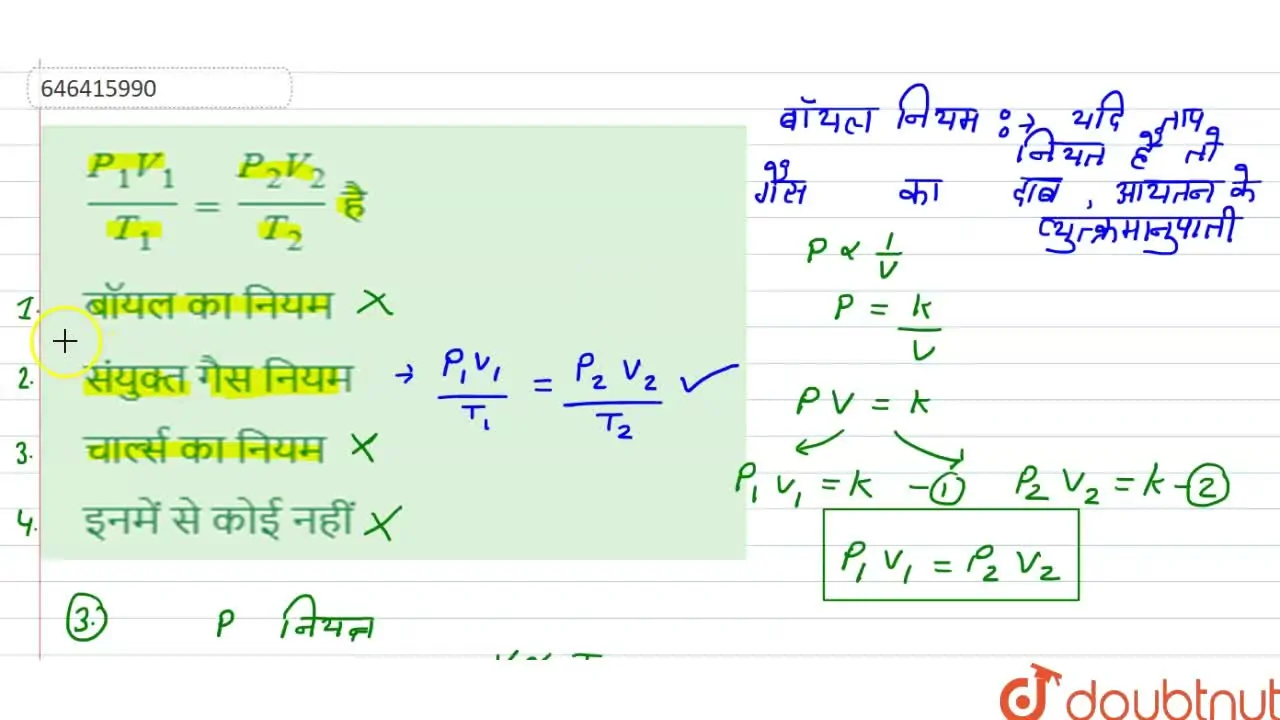 646415990
P₁V₁/T₁ = P₂V₂/T₂ है
1. बॉयल का नियम ×
2. संयुक्त गैस नियम → P₁V₁/T₁ = P₂V₂/T₂ ✓
3. चार्ल्स का नियम ×
4. इनमें से कोई नहीं ×
③. P नियत
V ∝ T
बॉयल नियम :→ यदि ताप
नियत है तो
गैस का दाब , आयतन के
व्युत्क्रमानुपाती
P ∝ 1/V
P = k/V
PV = k
P₁V₁ = k -① P₂V₂ = k-②
P₁V₁ = P₂V₂
doubtnut